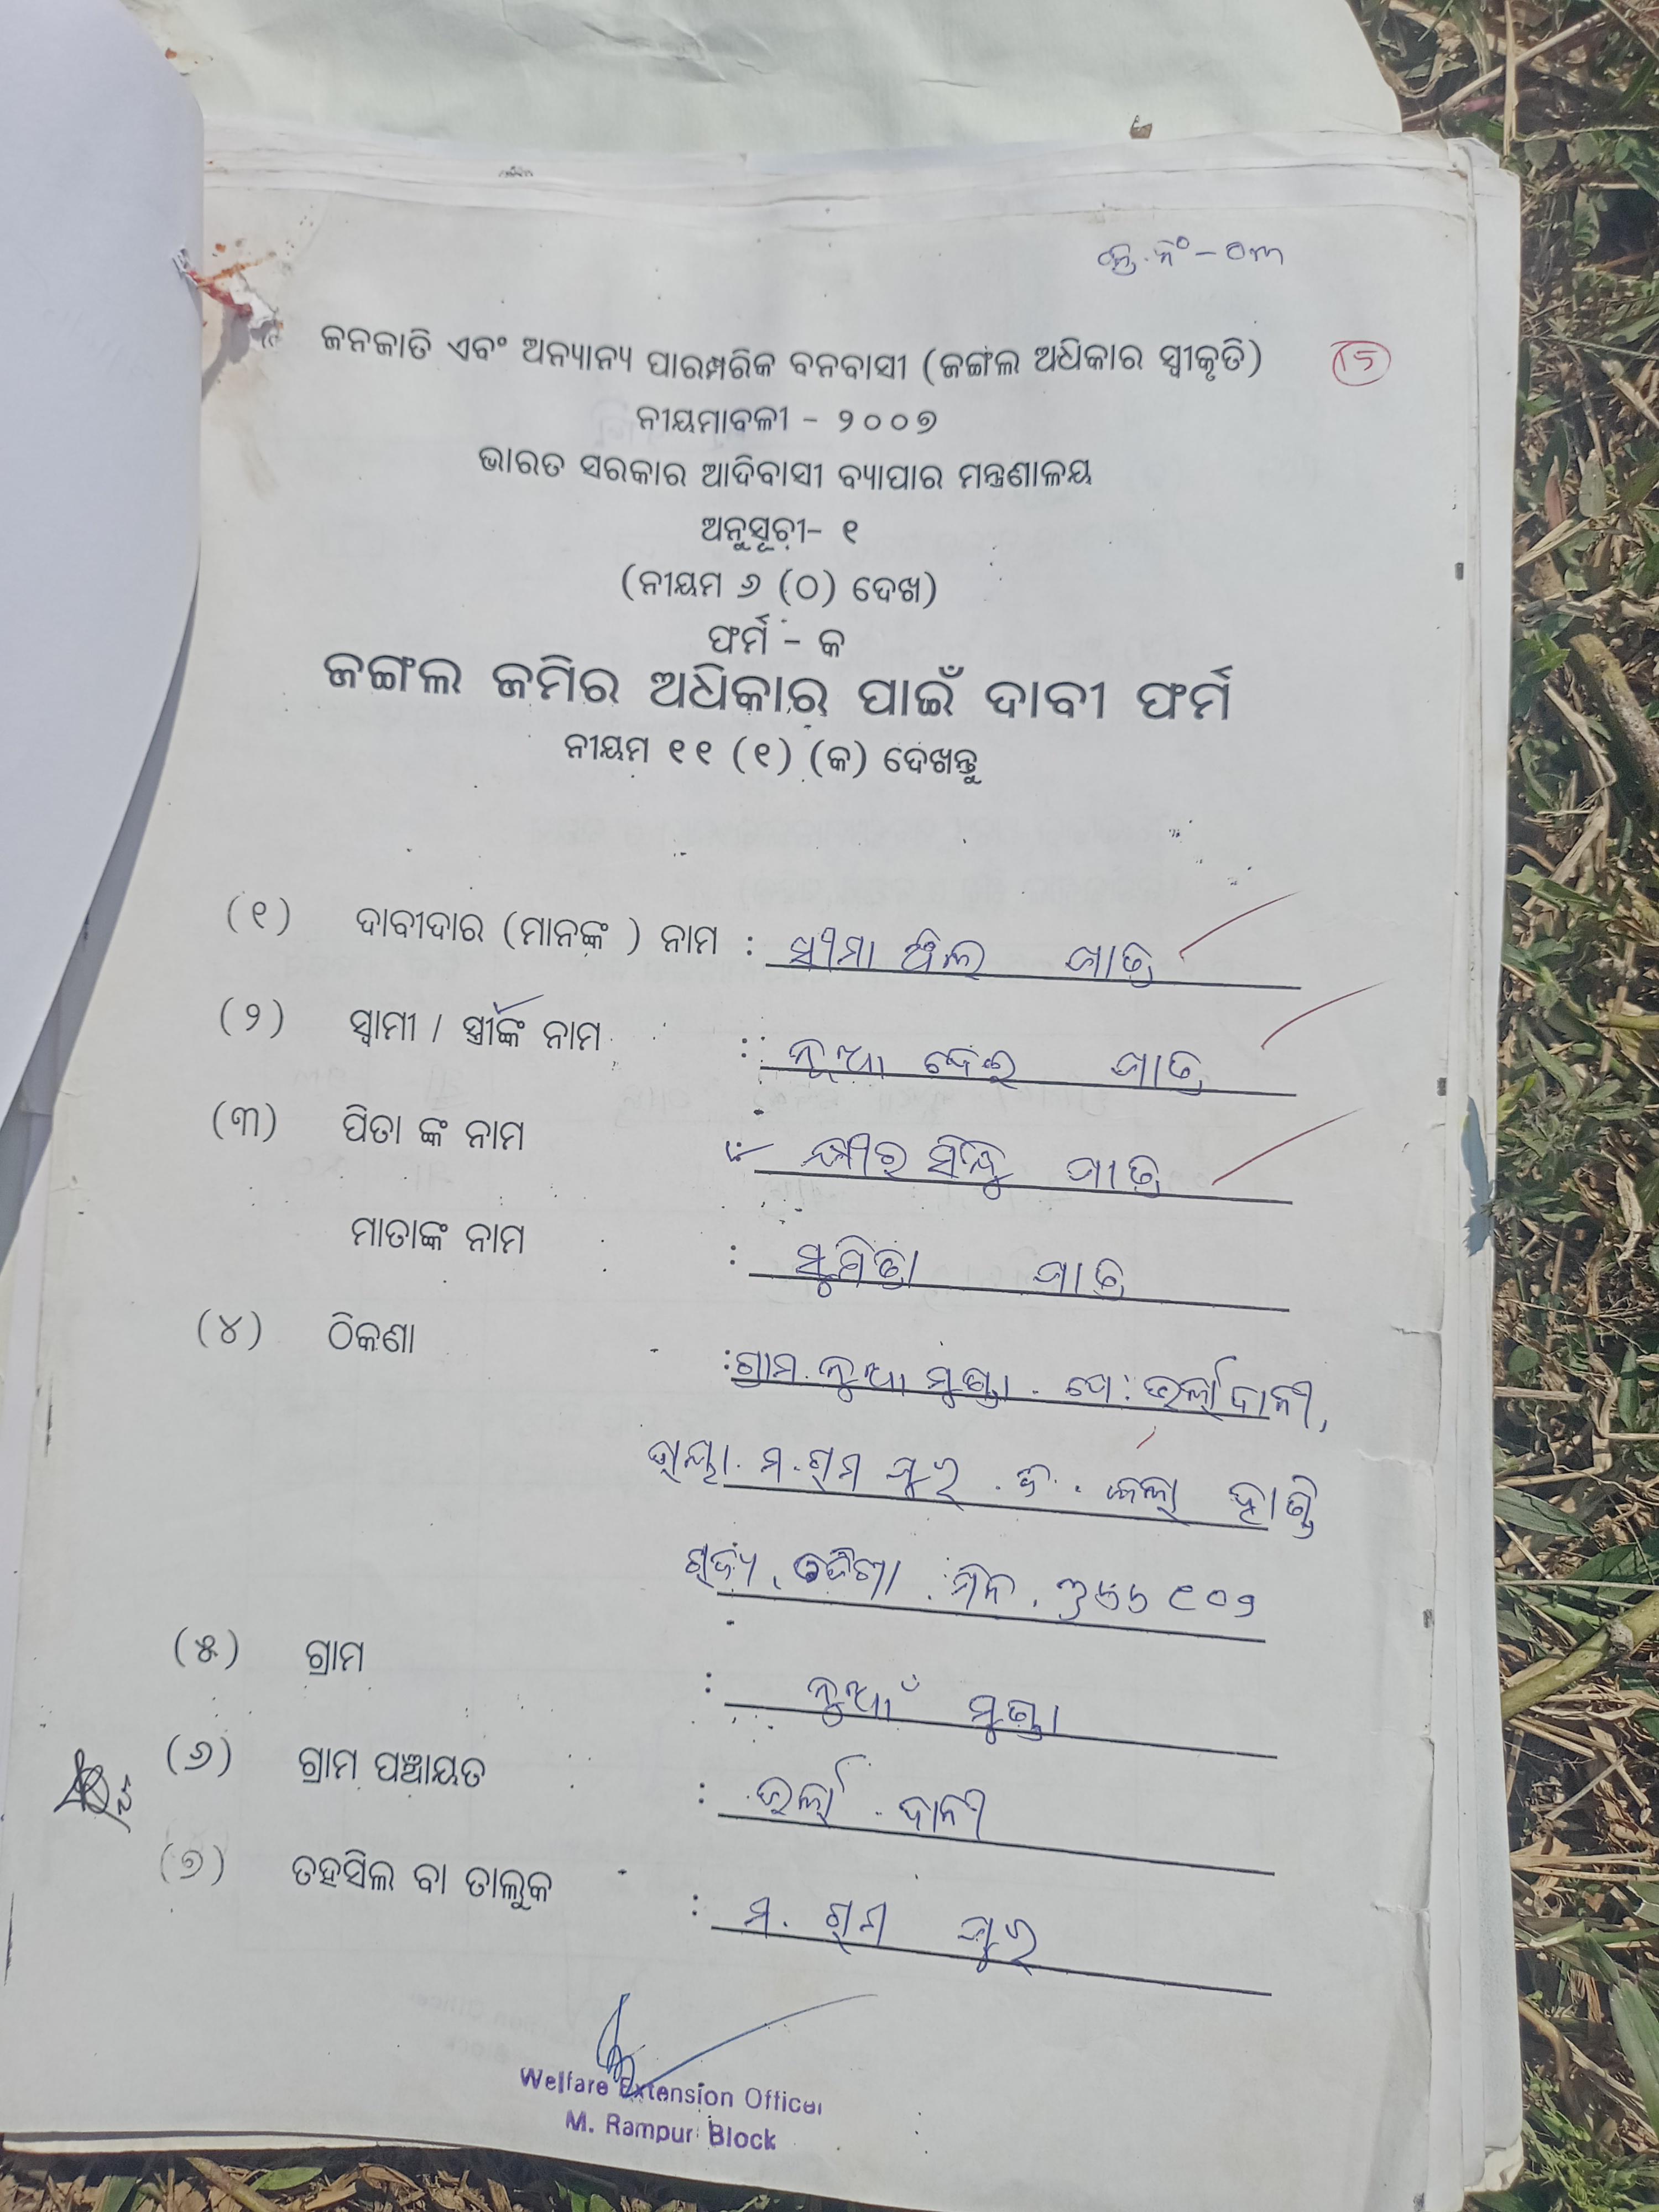 କ୍ର.ନଂ-୦୩
ଜନଜାତି ଏବଂ ଅନ୍ୟାନ୍ୟ ପାରମ୍ପରିକ ବନବାସୀ (ଜଙ୍ଗଲ ଅଧିକାର ସ୍ୱୀକୃତି)
15
ନୀୟମାବଳୀ - ୨୦୦୭
ଭାରତ ସରକାର ଆଦିବାସୀ ବ୍ୟାପାର ମନ୍ତ୍ରଣାଳୟ
ଅନୁସୂଚୀ- ୧
(ନୀୟମ ୬ (ଠ) ଦେଖ)
ଫର୍ମ - କ
ଜଙ୍ଗଲ ଜମିର ଅଧିକାର ପାଇଁ ଦାବୀ ଫର୍ମ
ନୀୟମ ୧୧ (୧) (କ) ଦେଖନ୍ତୁ
(୧) ଦାବୀଦାର (ମାନଙ୍କ ) ନାମ : ପାତ୍ର
(୨) ସ୍ୱାମୀ / ସ୍ତ୍ରୀଙ୍କ ନାମ : ନୂଆ ଦେଇ ପାତ୍ର
(୩) ପିତା ଙ୍କ ନାମ : କ୍ଷୀର ସିନ୍ଧୁ ପାତ୍ର
ମାତାଙ୍କ ନାମ : ସୁମିତ୍ରା ପାତ୍ର
(୪) ଠିକଣା : ଗ୍ରାମ. ନୁଆ ମୁଣ୍ଡା. ପୋ:
ମ. ରାମପୁର. ଜି. କଳା ହାଣ୍ଡି
ରାଜ୍ୟ, ଓଡିଶା. ପିନ. ୭୬୬୧୦୨
(୫) ଗ୍ରାମ : ନୁଆଁ ମୁଣ୍ଡା
(୬) ଗ୍ରାମ ପଞ୍ଚାୟତ :
(୭) ତହସିଲ ବା ତାଲୁକ : ମ. ରାମ ପୁର
Welfare Extension Officer
M. Rampur Block